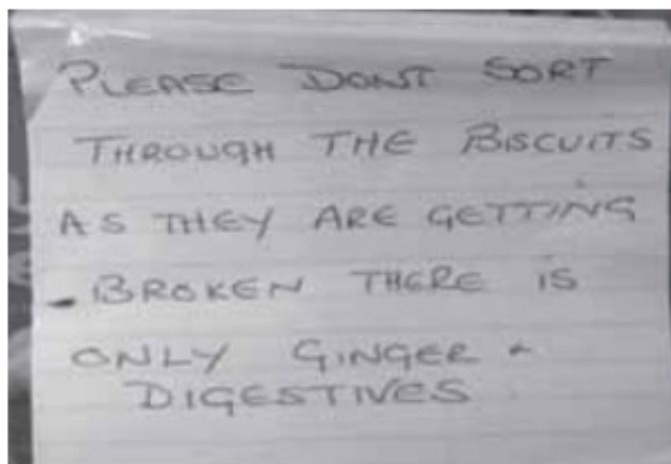 PLEASE DONT SORT
THROUGH THE BISCUITS
AS THEY ARE GETTING
BROKEN THERE IS
ONLY GINGER +
DIGESTIVES